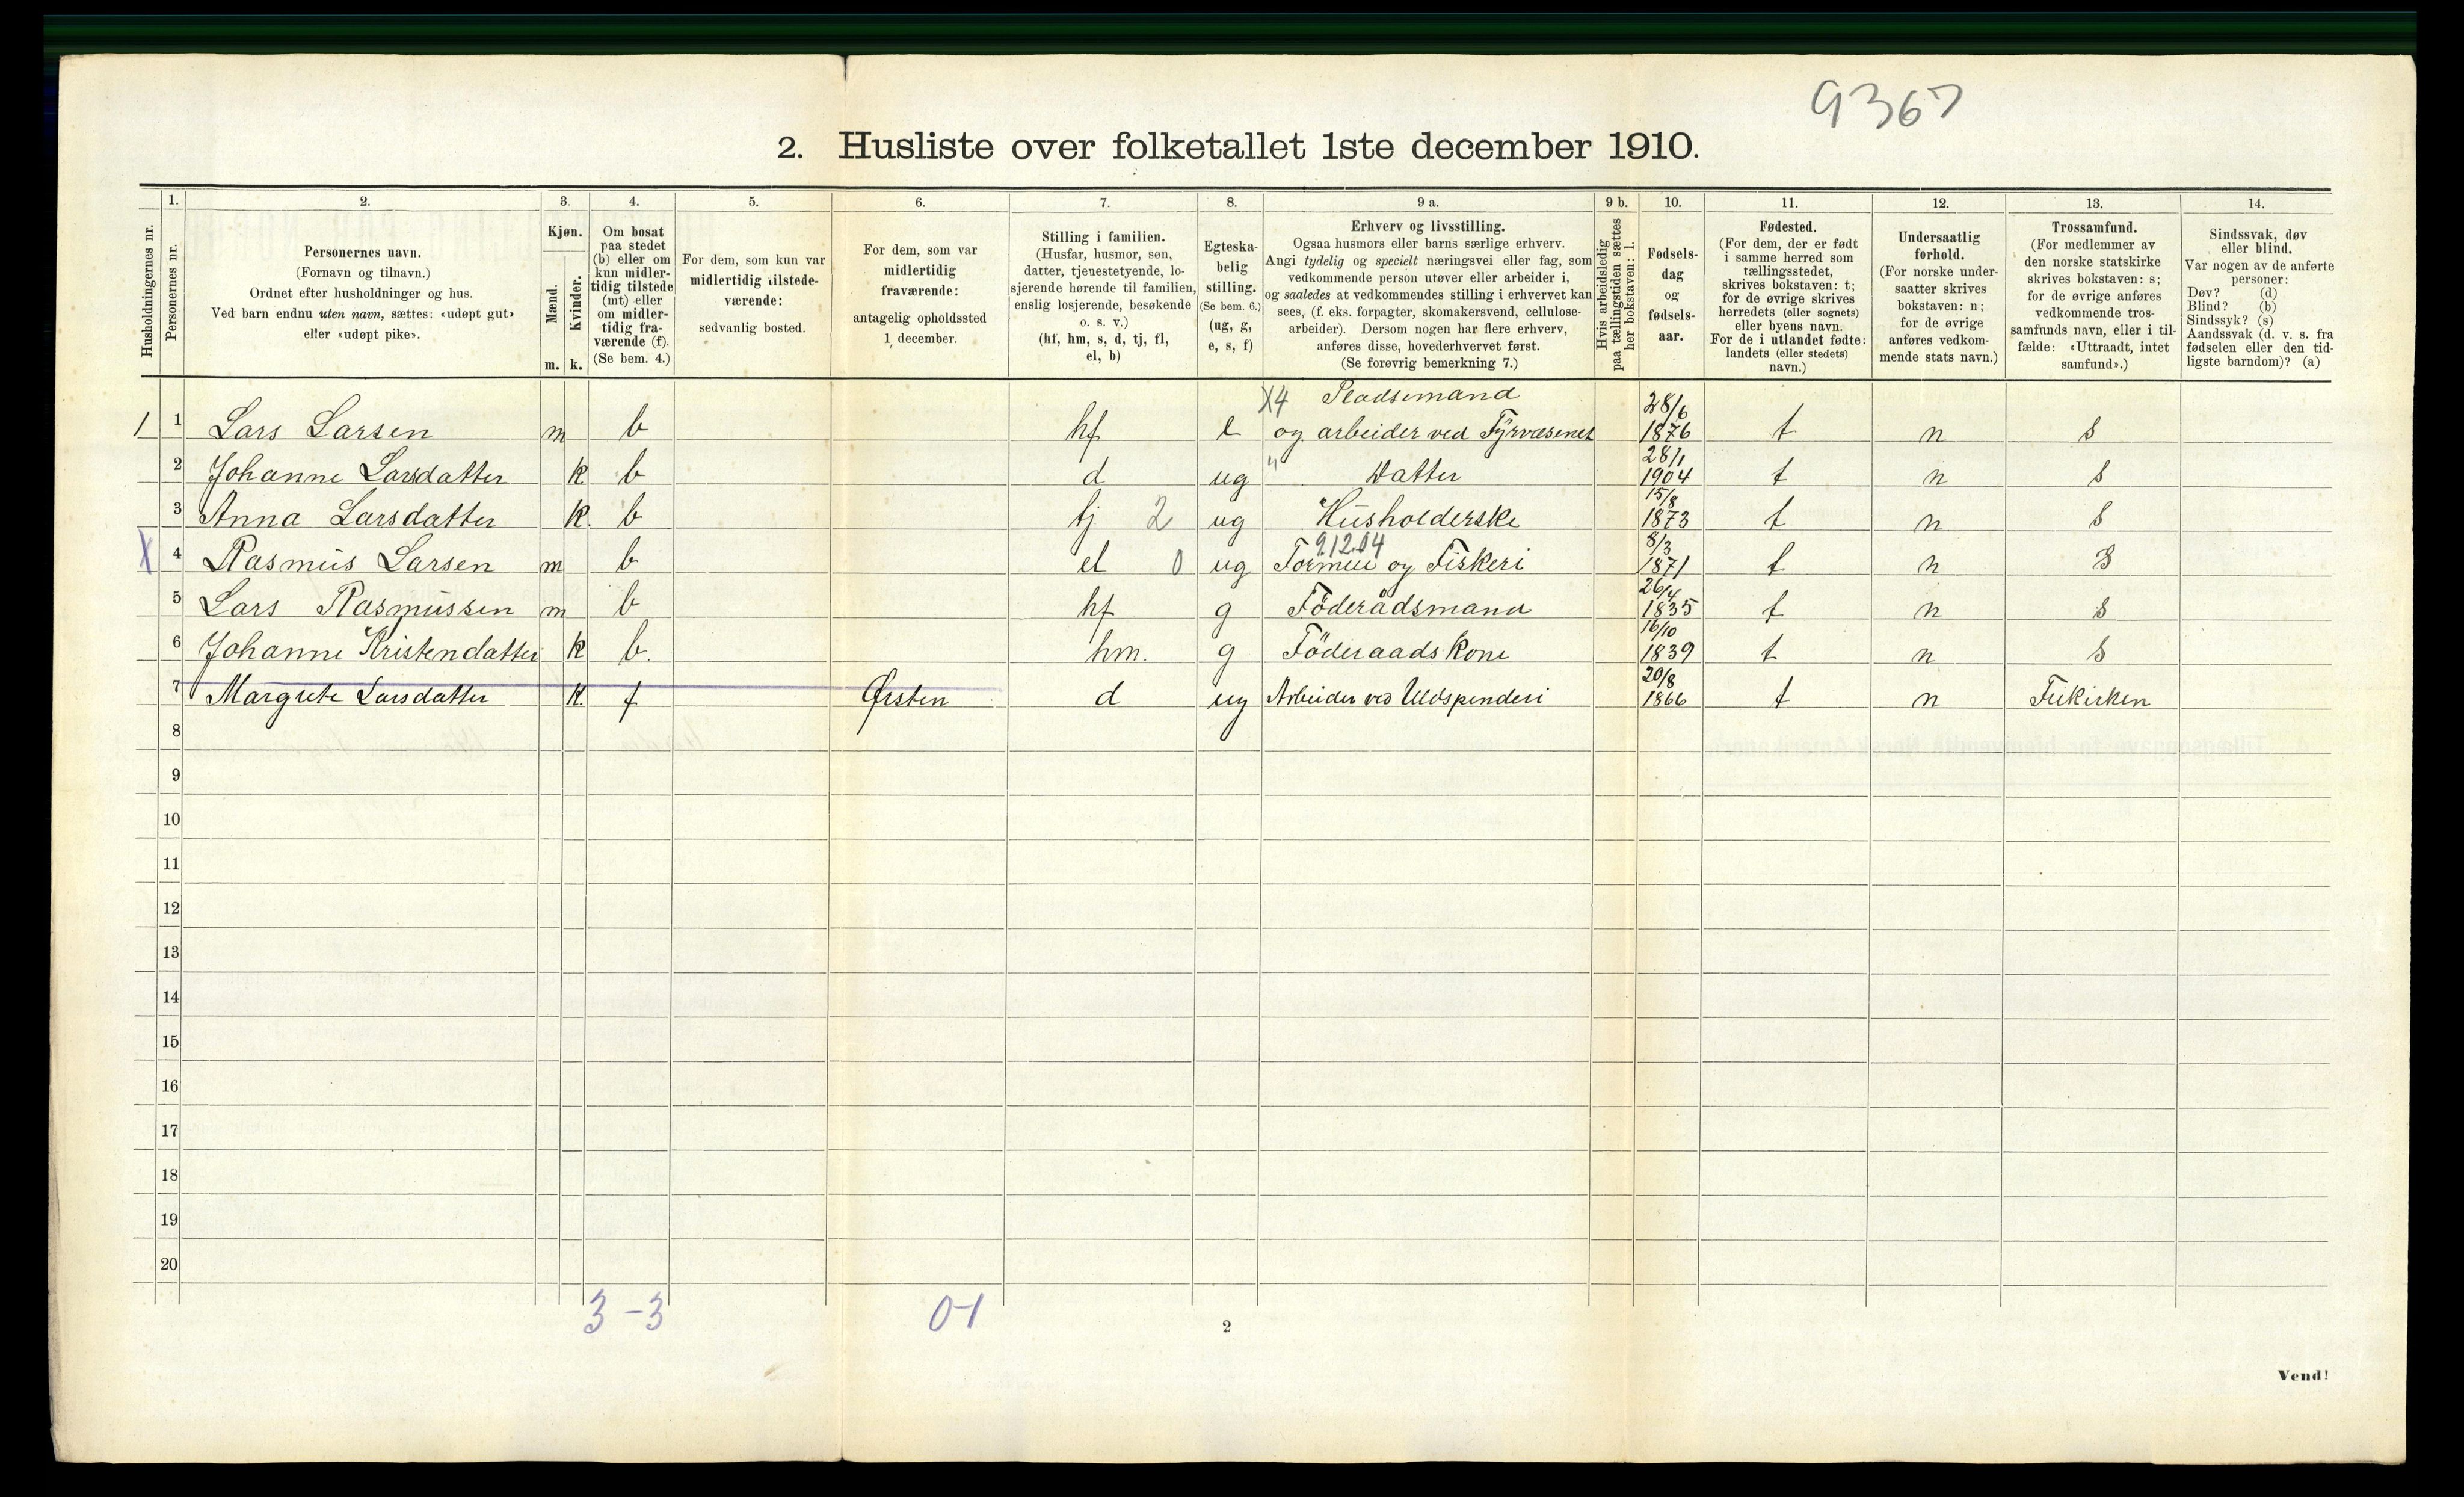 9367
2. Husliste over folketallet 1ste december 1910.
Husholdningernes nr.
1.
Personernes nr.
2.
Personernes navn.
(Fornavn og tilnavn.)
Ordnet efter husholdninger og hus.
Ved barn endnu uten navn, sættes: «udøpt gut»
eller «udøpt pike».
3.
Kjøn.
Mænd.
Kvinder.
m. k.
4.
Om bosat
paa stedet
(b) eller om
kun midler-
tidig tilstede
(mt) eller
om midler-
tidig fra-
værende (f).
(Se bem. 4.)
5.
For dem, som kun var
midlertidig tilstede-
værende:
sedvanlig bosted.
6.
For dem, som var
midlertidig
fraværende:
antagelig opholdssted
1 december.
7.
Stilling i familien.
(Husfar, husmor, søn,
datter, tjenestetyende, lo-
sjerende hørende til familien,
enslig losjerende, besøkende
o. s. v.)
(hf, hm, s, d, tj, fl,
el, b)
8.
Egteska-
belig
stilling.
(Se bem. 6.)
(ug, g,
e, s, f)
9 a.
Erhverv og livsstilling.
Ogsaa husmors eller barns særlige erhverv.
Angi tydelig og specielt næringsvei eller fag, som
vedkommende person utøver eller arbeider i,
og saaledes at vedkommendes stilling i erhvervet kan
sees, (f. eks. forpagter, skomakersvend, cellulose-
arbeider). Dersom nogen har flere erhverv,
anføres disse, hovederhvervet først.
(Se forøvrig bemerkning 7.)
9 b.
Hvis arbeidsledig
paa tællingstiden sættes
her bokstaven: l.
10.
Fødsels-
dag
og
fødsels-
aar.
11.
Fødested.
(For dem, der er født
i samme herred som
tællingsstedet,
skrives bokstaven: t;
for de øvrige skrives
herredets (eller sognets)
eller byens navn.
For de i utlandet fødte:
landets (eller stedets)
navn.)
12.
Undersaatlig
forhold.
(For norske under-
saatter skrives
bokstaven: n;
for de øvrige
anføres vedkom-
mende stats navn.)
13.
Trossamfund.
(For medlemmer av
den norske statskirke
skrives bokstaven: s;
for de øvrige anføres
vedkommende tros-
samfunds navn, eller i til-
fælde: «Uttraadt, intet
samfund».)
14.
Sindssvak, døv
eller blind.
Var nogen av de anførte
personer:
Døv? (d)
Blind? (b)
Sindssyk? (s)
Aandssvak (d. v. s. fra
fødselen eller den tid-
ligste barndom)? (a)
X4 Pladsemand 28/6
1 1 Lars Larsen m b hf e og arbeider ved Fyrvæsenet 1876 t n s
28/1
2 Johanne Larsdatter k b d ug " Datter 1904 t n s
15/8
3 Anna Larsdatter k. b tj 2 ug Husholderske 1873 t n s
91204 8/3
X 4 Rasmus Larsen m b el 0 ug Formue og Fiskeri 1871 t n s
26/4
5 Lars Rasmussen m b hf g Föderådsmand 1835 t n s
16/10
6 Johanne Kristendatter k b. hm. g Föderaadskone 1839 t n s
20/8
7 Margrete Larsdatter k. f Ørsten d ug Arbeider ved Uldspinderi 1866 t n Frikirken
8
9
10
11
12
13
14
15
16
17
18
19
20
3-3 0-1
2
Vend!